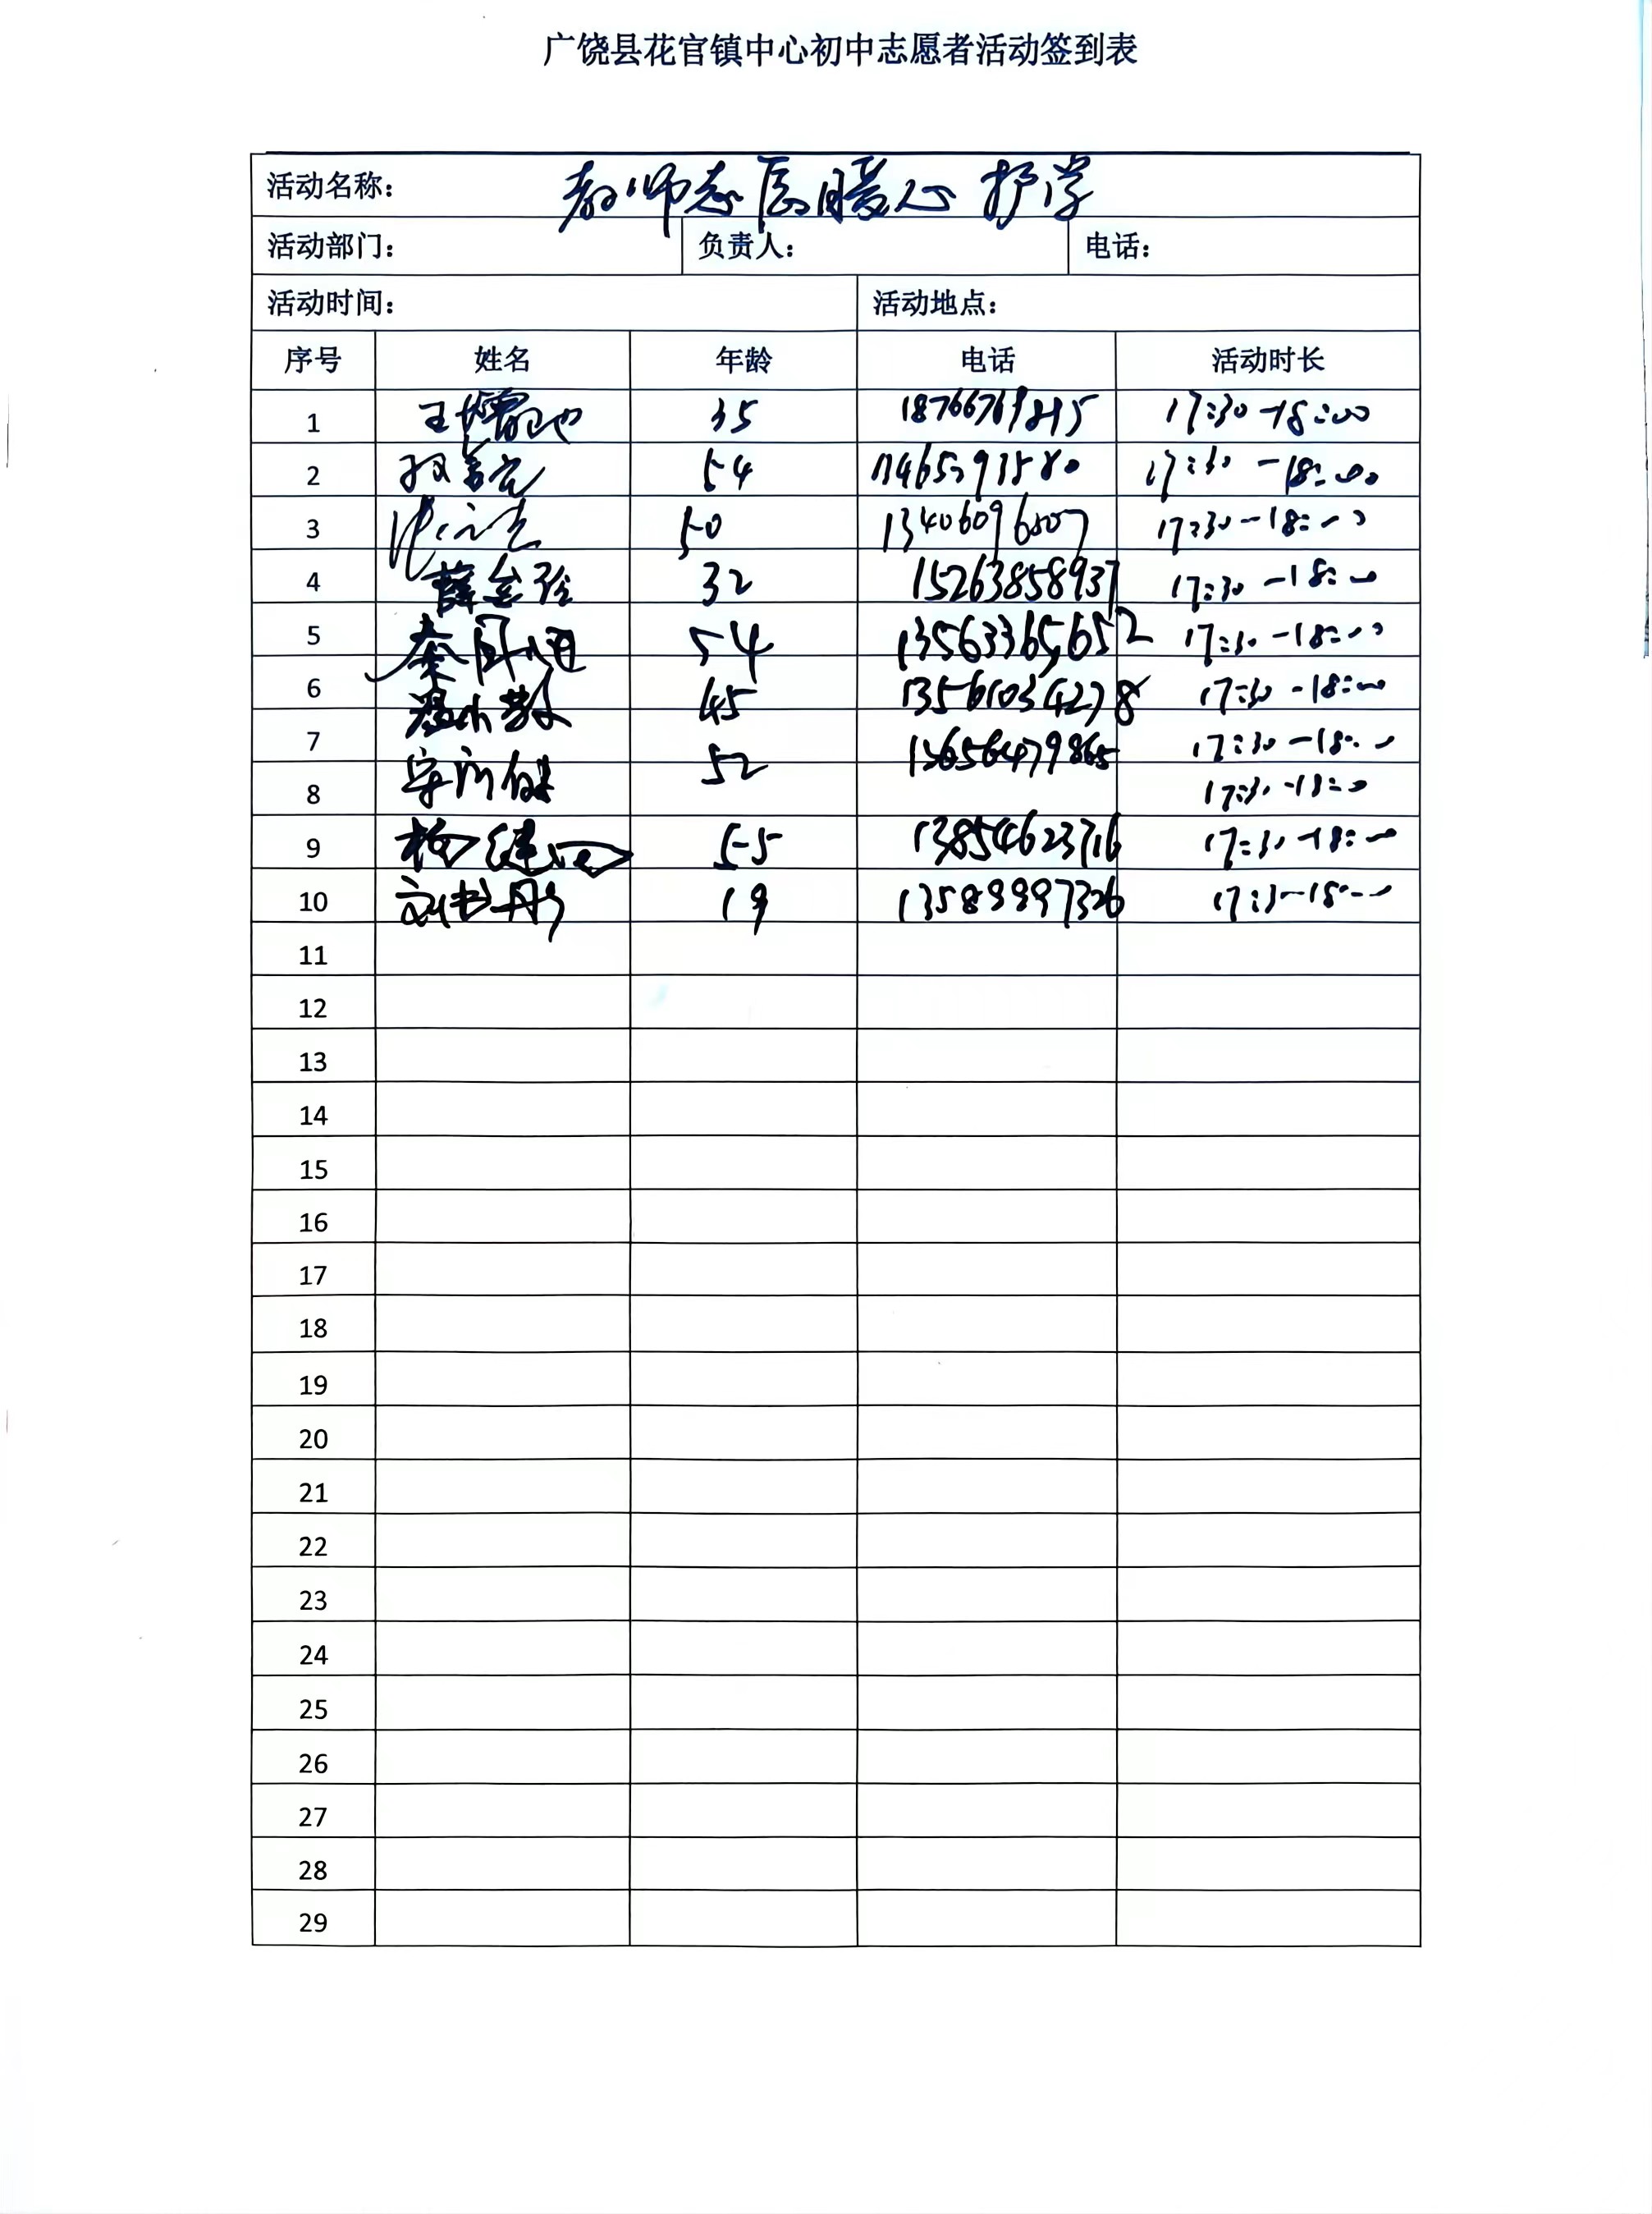 广饶县花官镇中心初中志愿者活动签到表
活动名称： 教师志愿暖心护学
活动部门： 负责人： 电话：
活动时间： 活动地点：
序号 姓名 年龄 电话 活动时长
1 35 17:30-18:00
2 54 17:30-18:00
3 50 13406096507 17:30-18:00
4 32 15263858937 17:30-18:00
5 54 13563365652 17:30-18:00
6 45 13561034278 17:30-18:00
7 52 13656479865 17:30-18:00
8 17:30-18:00
9 55 13854623716 17:30-18:00
10 刘书丹 19 13589997326 17:30-18:00
11
12
13
14
15
16
17
18
19
20
21
22
23
24
25
26
27
28
29